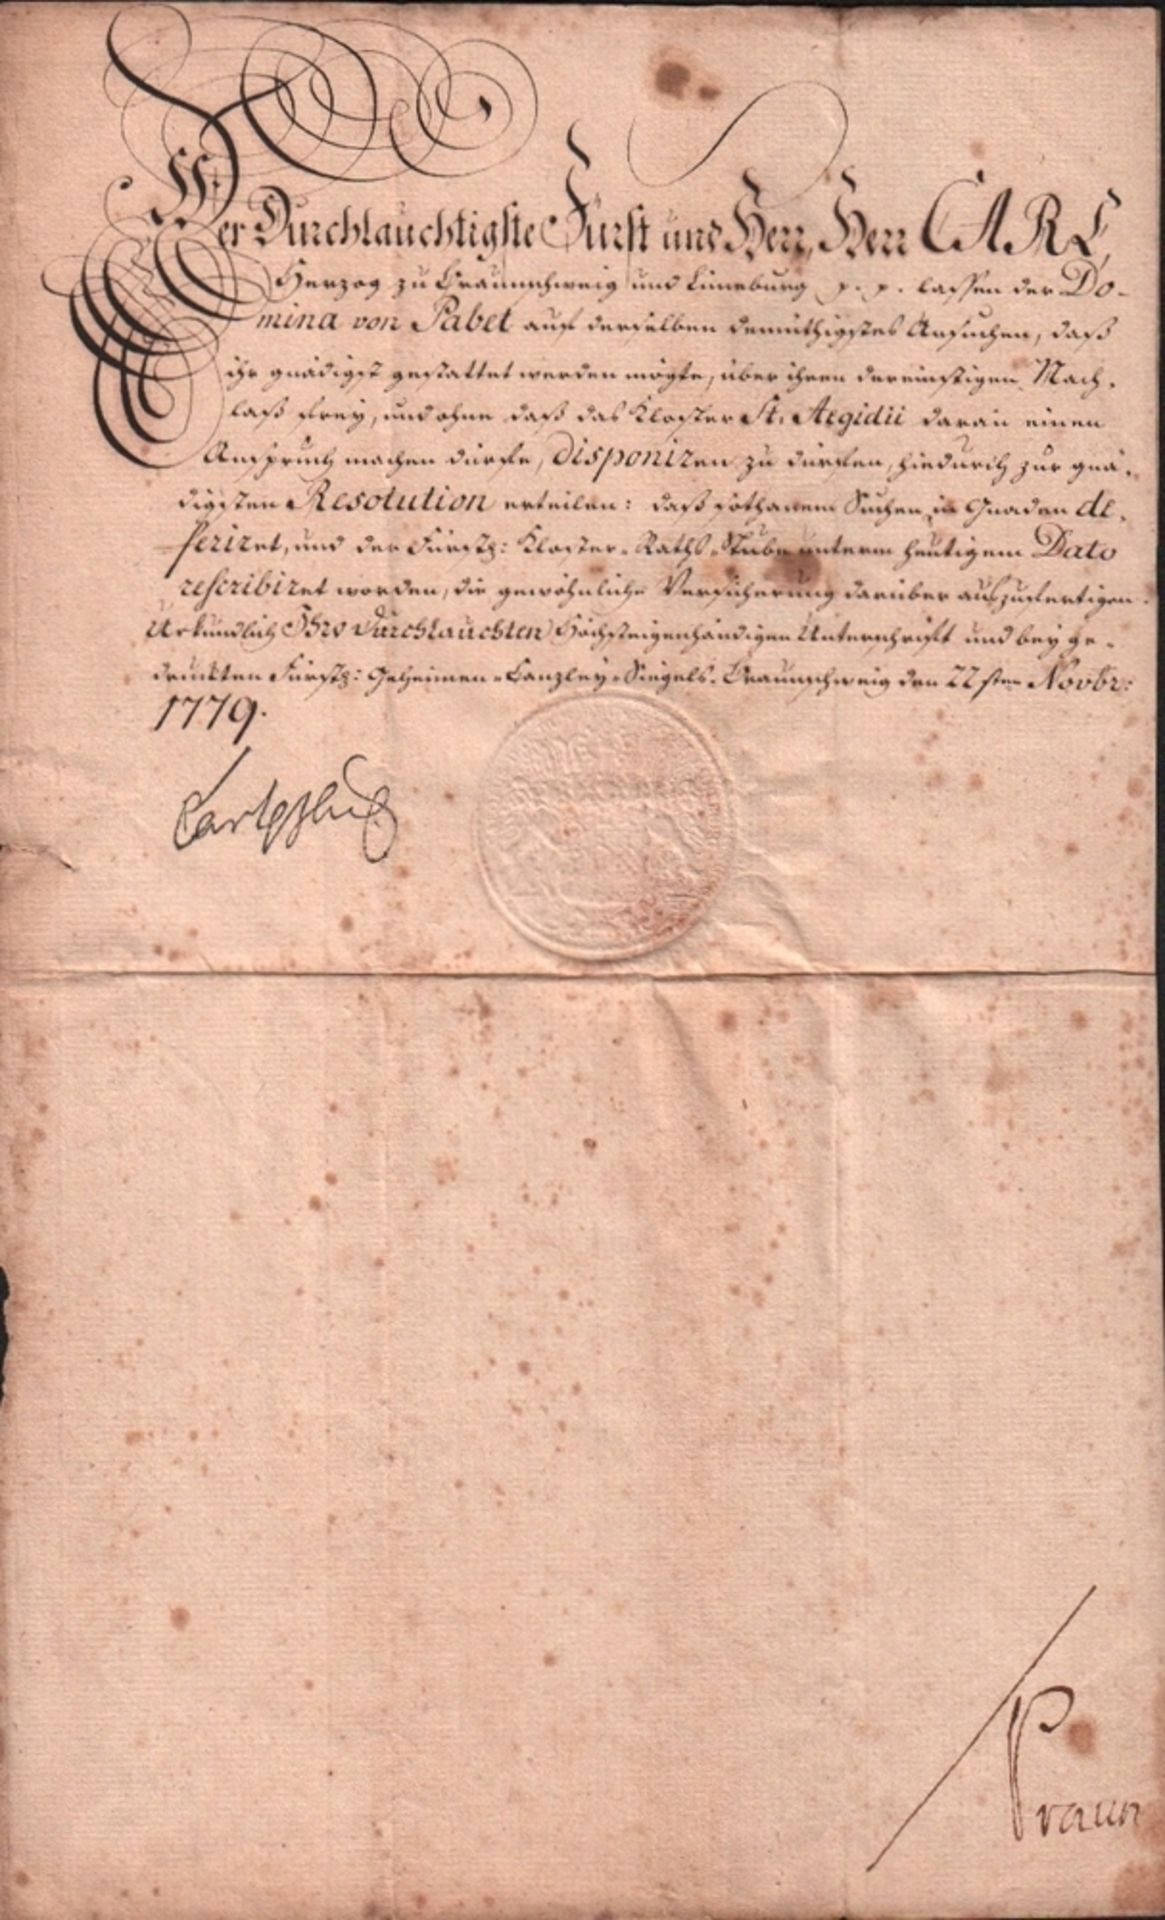 Der Durchlauchtigste Fürst und Herr, Herr CARL,
Herzog zu Braunschweig und Lüneburg p. p. lassen der Do-
mina von Pabet auf derselben demüthigstes Ansuchen, daß
ihr gnädigst gestattet werden mögte, über ihren dereinstigen Nach-
laß frey, und ohne daß das Kloster St. Aegidii daran einen
Anspruch machen dürfe, disponiren zu dürfen, hiedurch zur gnä-
digsten Resolution erteilen: daß sothanem Suchen in Gnaden de-
feriret, und der Fürstl: Kloster-Raths-Stube unterm heutigem Dato
rescribiret worden, die gewöhnliche Versicherung darüber auszufertigen.
Urkundlich Ihro Durchlauchten Höchsteigenhändigen Unterschrift und beyge-
druckten Fürstl: Geheimen-Canzley-Siegels. Braunschweig den 22sten Novbr:
1779.
Carl
Praun